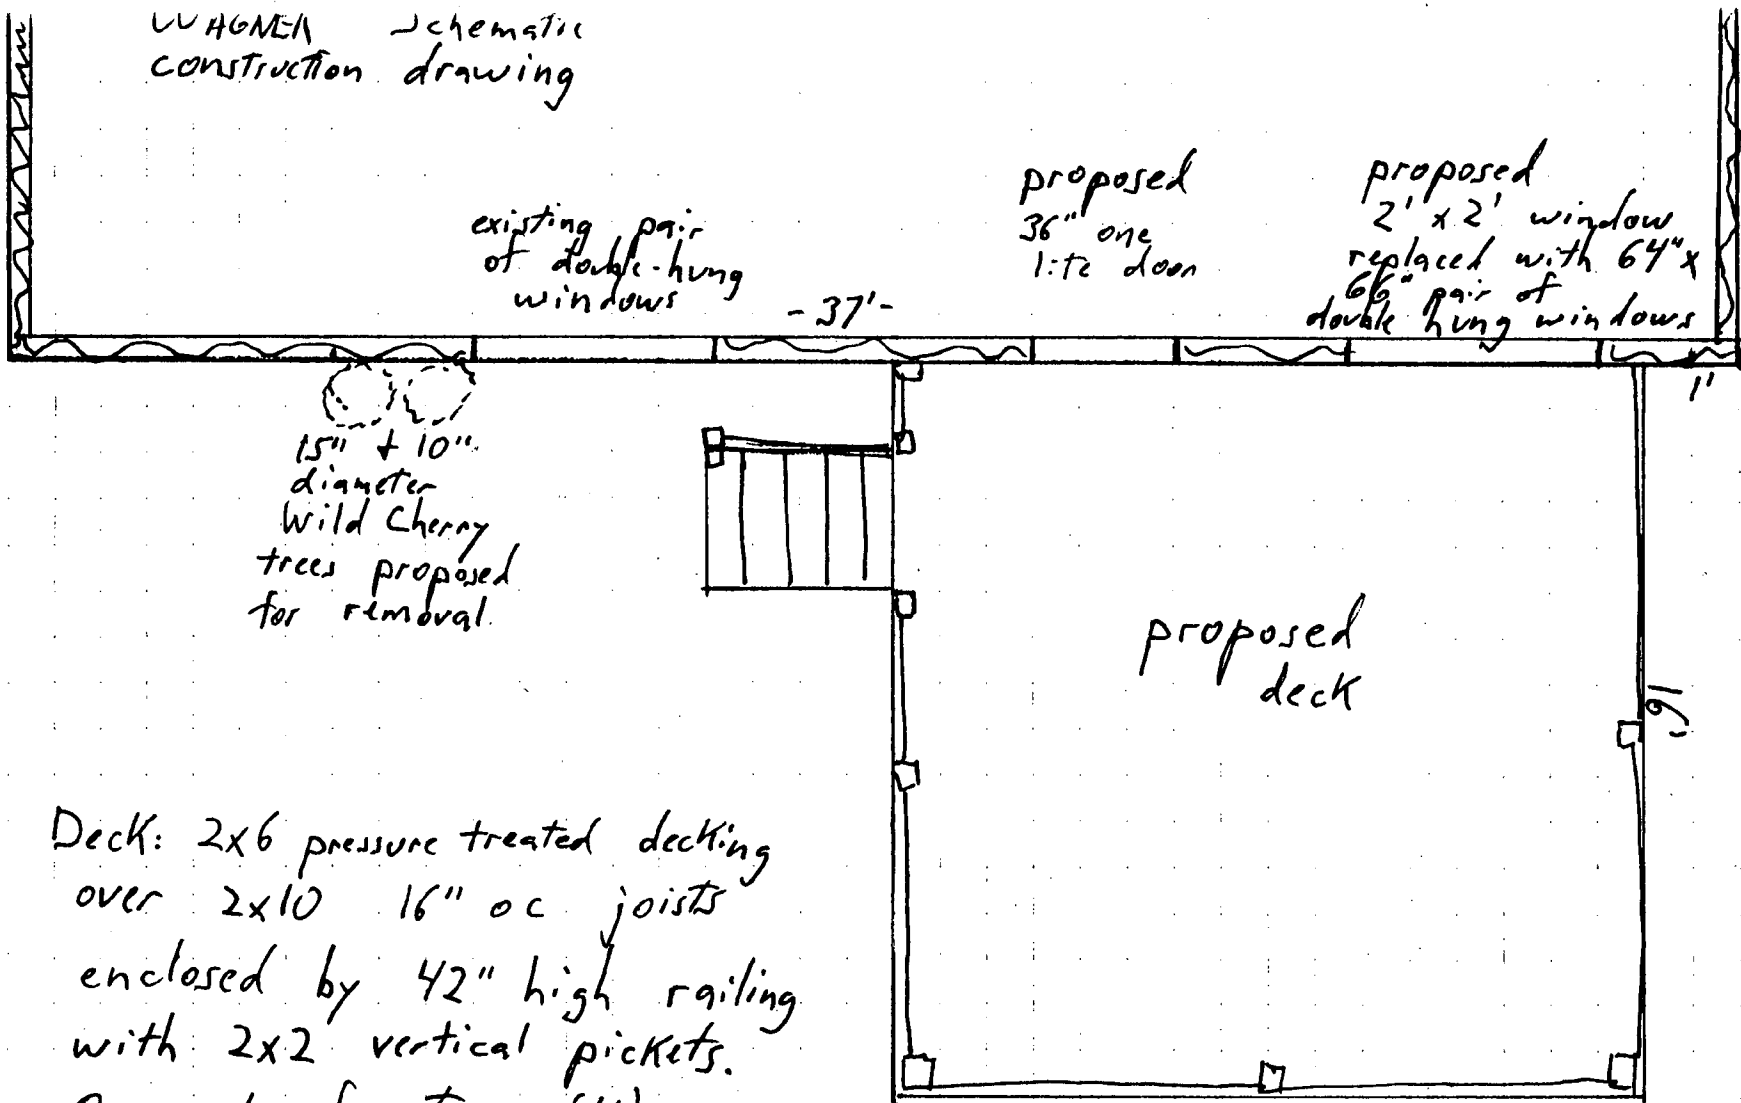 WAGNER Schematic
construction drawing
existing pair
of double-hung
windows
- 37' -
proposed
36" one
lite door
proposed
2' x 2' window
replaced with 64" x
66" pair of
double hung windows
1'
15" + 10"
diameter
Wild Cherry
trees proposed
for removal
proposed
deck
16'
Deck: 2x6 pressure treated decking
over 2x10 16" oc joists
enclosed by 42" high railing
with 2x2 vertical pickets.